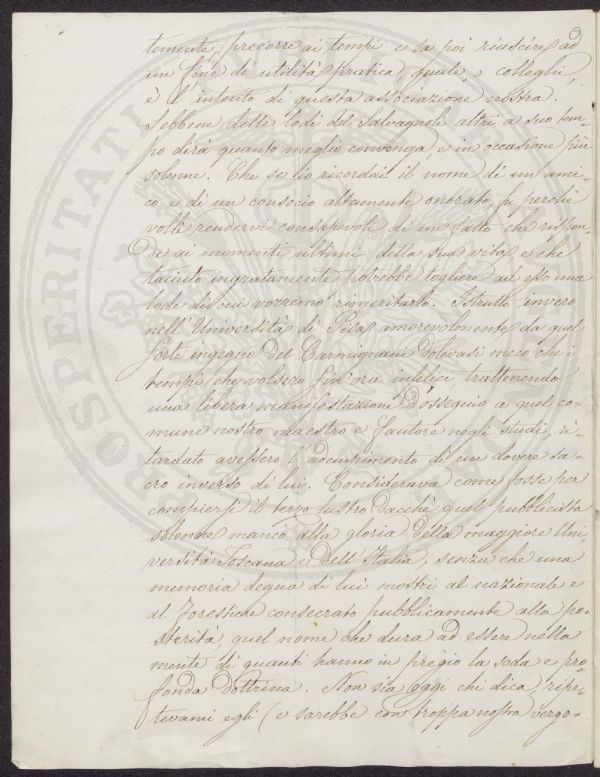 temente, precorre ai tempi e sa poi riuscire ad
un fine di utilità pratica, quale, o colleghi,
è l'intento di questa associazione nostra.
Sebbene delle lodi del Salvagnoli altri a suo tem-
po dirà quanto meglio convenga, e in occasione più
solenne. Che se io ricordai il nome di un ami-
co e di un consocio altamente onorato, fu perché
volli rendervi consapevoli di un fatto che rispon-
de ai momenti ultimi della sua vita, e che
taciuto ingratamente potrebbe togliere ad esso una
lode di cui vorremo rimeritarlo. Istrutto invero
nell'Università di Pisa amorevolmente da quel
forte ingegno del Carmignani dolevasi meco che i
tempi, che volsero fin'ora infelici, trattenendo
una libera manifestazione d'ossequio a quel co-
mune nostro maestro e fautore negli studi, ri-
tardato avessero l'adempimento di un dovere sa-
cro inverso di lui. Considerava come fosse per
compiersi il terzo lustro dacché quel pubblicista
solenne mancò alla gloria della maggiore Uni-
versità Toscana e dell'Italia, senza che una
memoria degna di lui mostri al nazionale e
al forestiere consecrato pubblicamente alla po-
sterità, quel nome che dura ad essere nella
mente di quanti hanno in pregio la soda e pro-
fonda dottrina. Non sia oggi chi dica, ripe-
tevami egli (e sarebbe con troppa nostra vergo-
PROSPERITATI